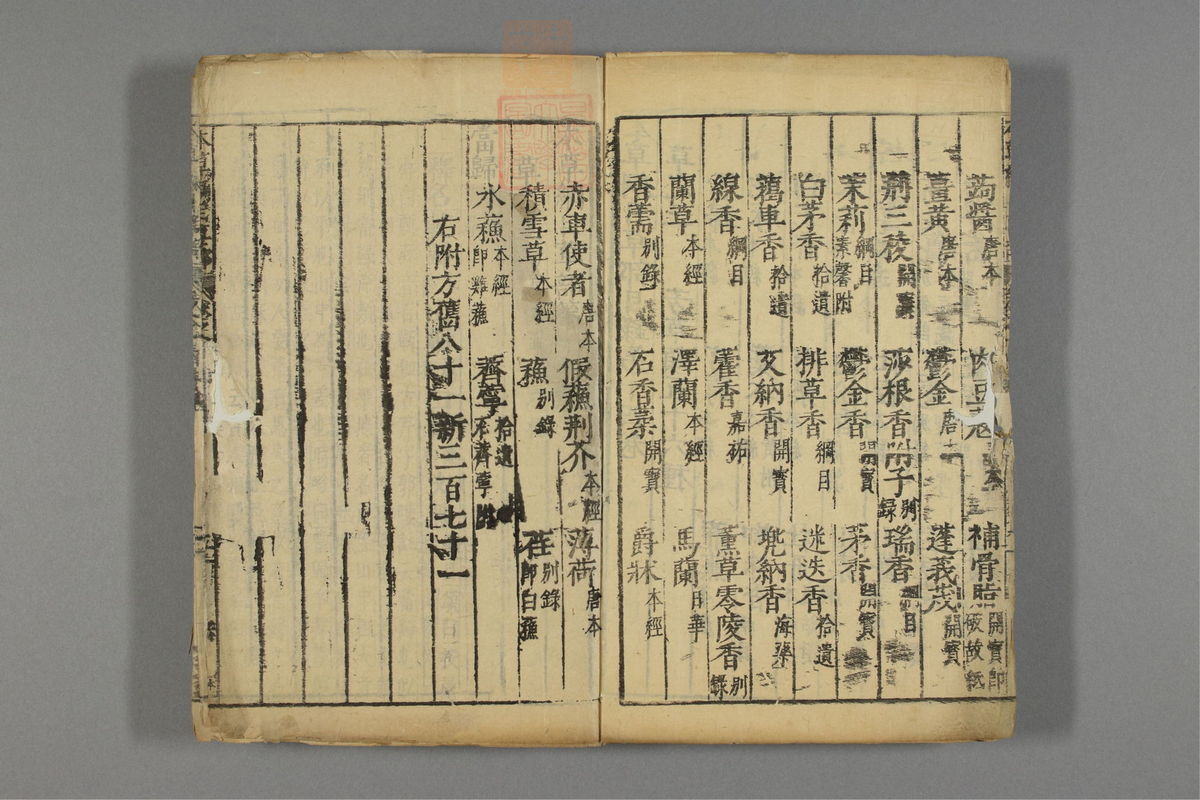 蒟醬唐本 肉豆蔻 補骨脂開寶即破故紙
薑黃唐本 鬱金唐本 蓬莪茂開寶
荊三稜開寶 莎根香附子別錄 瑞香綱目
茉莉綱目素馨附 鬱金香開寶 茅香開寶
白茅香拾遺 排草香綱目 迷迭香拾遺
藒車香拾遺 艾納香開寶 兠納香海藥
線香綱目 藿香嘉祐 薰草零陵香別錄
蘭草本經 澤蘭本經 馬蘭日華
香薷別錄 石香葇開寶 爵牀本經
赤車使者唐本 假蘇荊芥本經 薄荷唐本
積雪草本經 蘇別錄 荏別錄即白蘇
水蘇本經即雞蘇 薺薴拾遺石薺薴附
右附方舊八十一新三百七十一